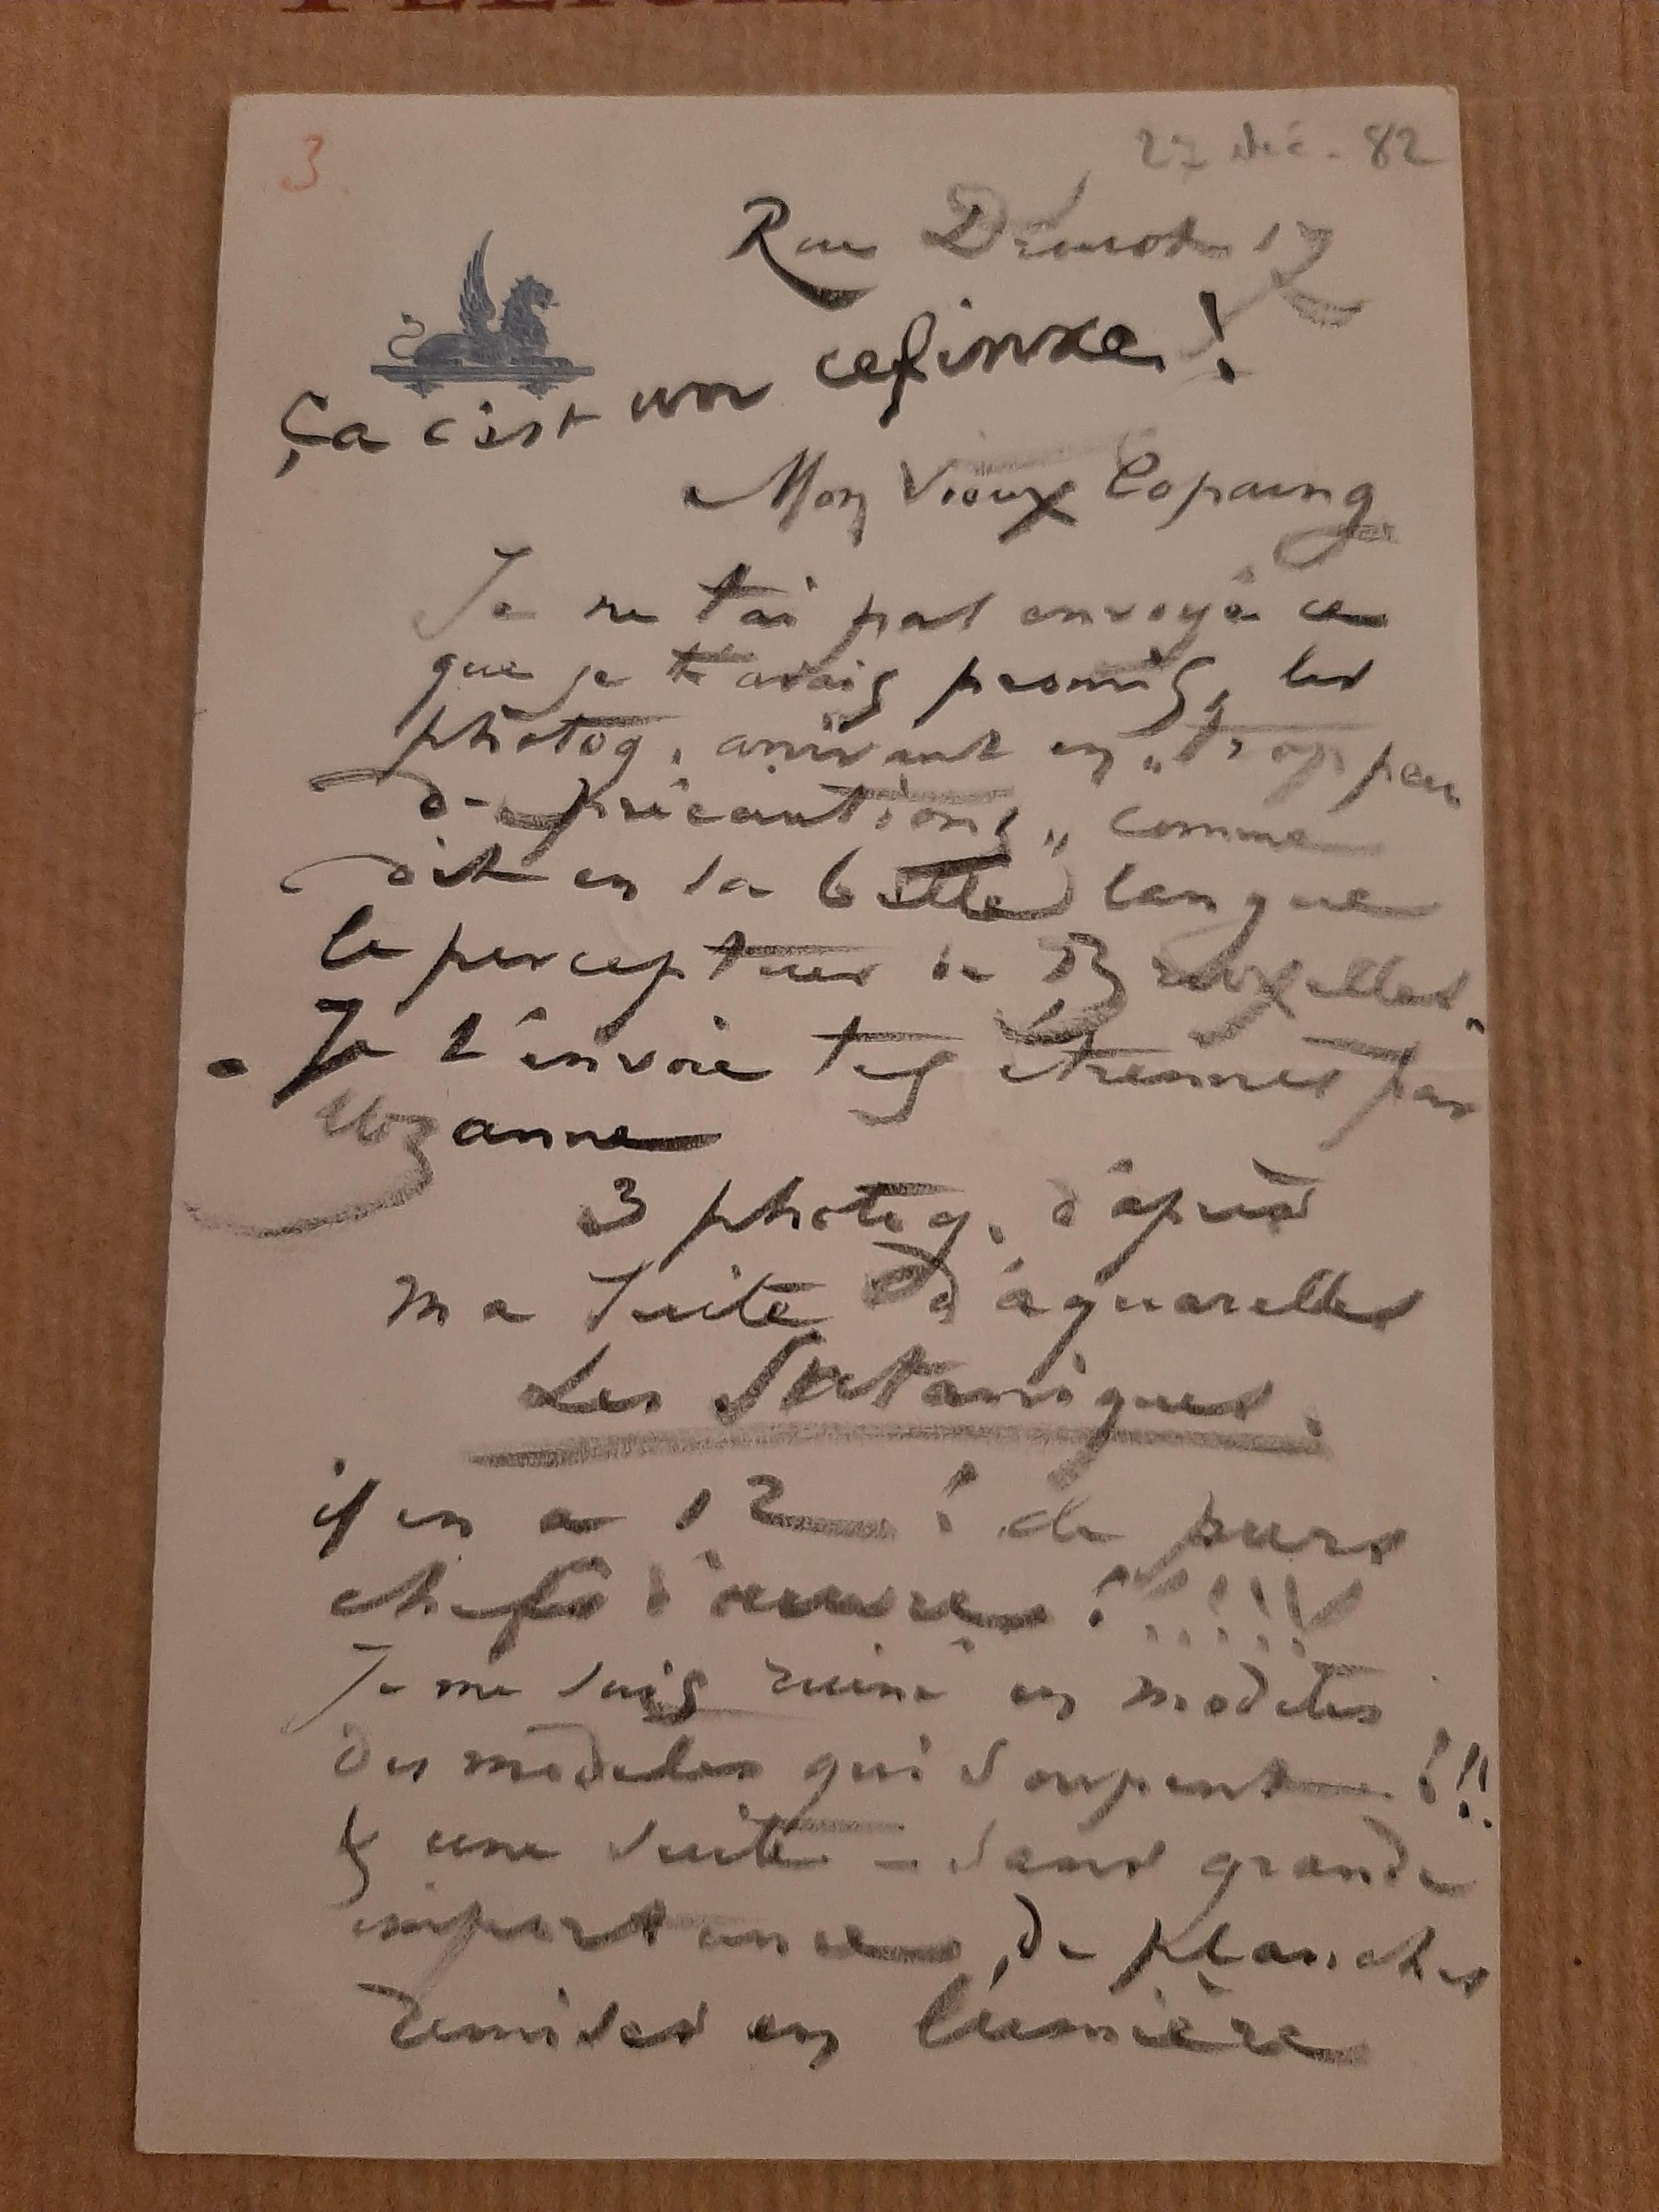 3.
27 Déc. 82
Rue Drouot 17
Ça c'est un cefinxe !
Mon Vieux Copaing
Je ne t'ai pas envoyé ce
que je t'avais promis, les
photog. arrivant en „trop peu
de précautions„ comme
dit en sa belle langue
le percepteur de Bruxelles.
Je t'envoie tes étrennes par
Uzanne
3 photog. d'après
ma suite d'aquarelles
Les Sataniques.
il en a 12 ! de purs
chefs d'œuvre !!!!!!
Je me suis ruiné en modèles
des modèles qui soupent !!!
& une suite – sans grande
importance, de planches
remises en lumière